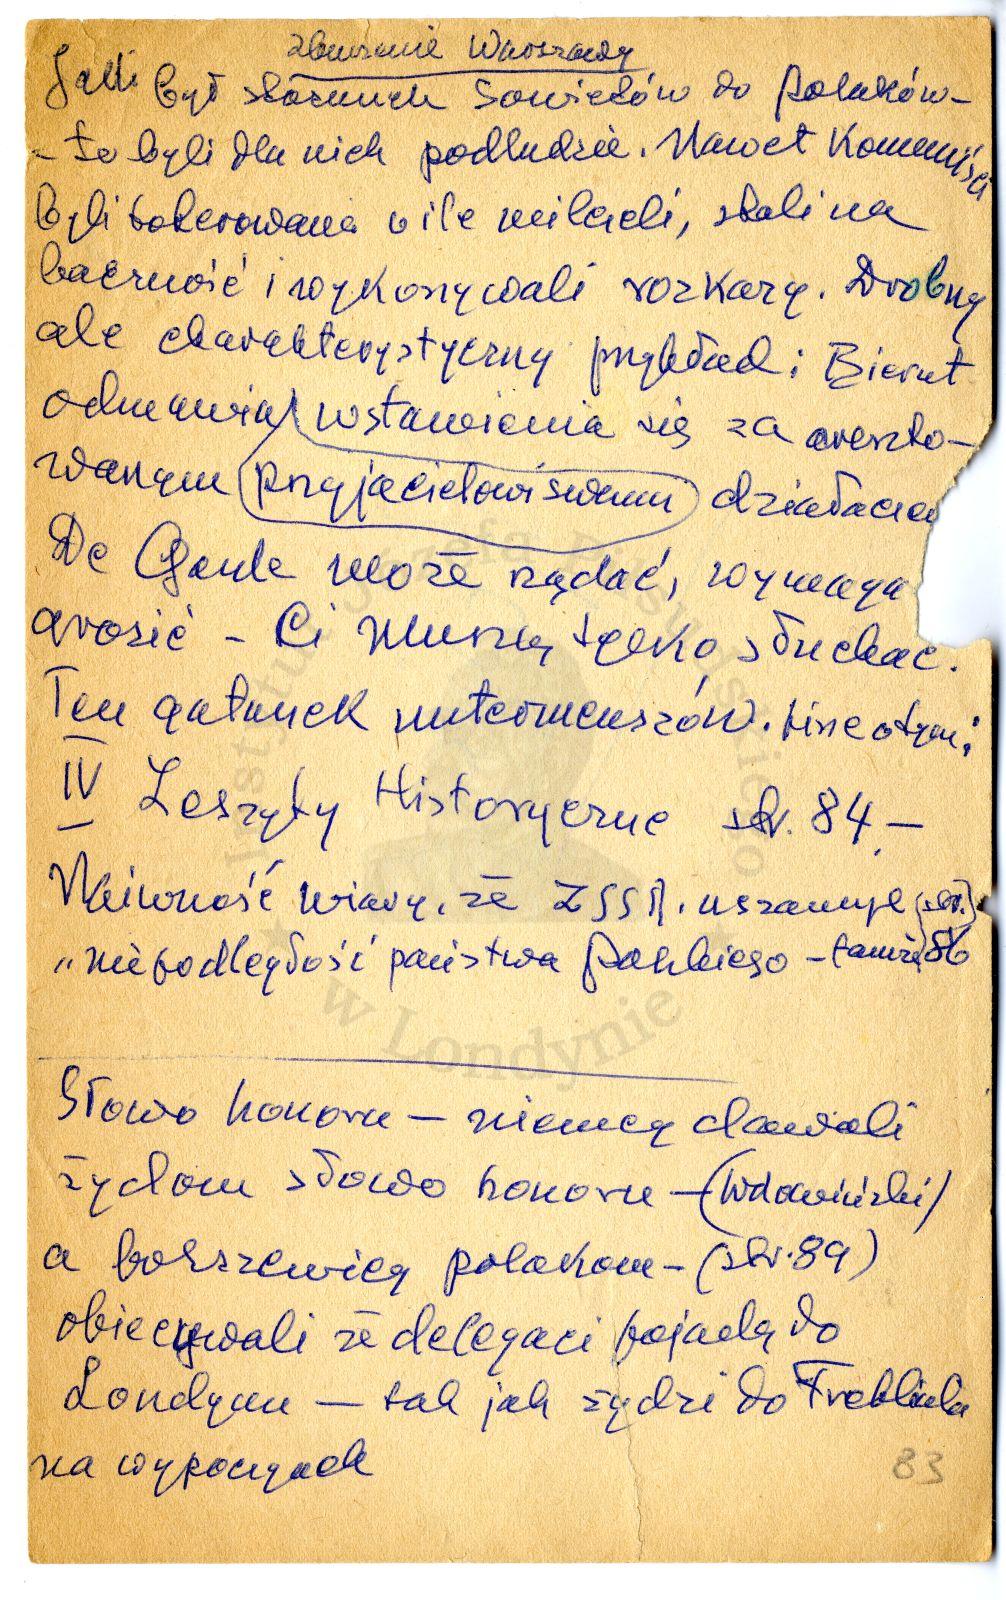 zburzenie Warszawy
Jaki był stosunek Sowietów do Polaków –
– to byli dla nich podludzie. Nawet Komuniści
byli tolerowani o ile milczeli, stali na
baczność i wykonywali rozkazy. Drobny
ale charakterystyczny przykład: Bierut
odmawiał wstawienia się za areszto-
wanym przyjacielowi swemu działacz
De Gaule może żądać, wymaga
grozić – Ci muszą tylko słuchać.
Ten gatunek untermenszów.
IV Zeszyty Historyczne str. 84 –
Naiwność wiary, że ZSSR. uszanuje (str.
„niepodległość państwa Polskiego – tamże 86
Słowo honoru – niemcy dawali
żydom słowo honoru – (Wdowiński)
a bolszewicy polakom – (str. 89)
obiecywali że delegaci pojadą do
Londynu – tak jak żydzi do Treblinki
na wypoczynek
83
Instytut Józefa Piłsudskiego
w Londynie